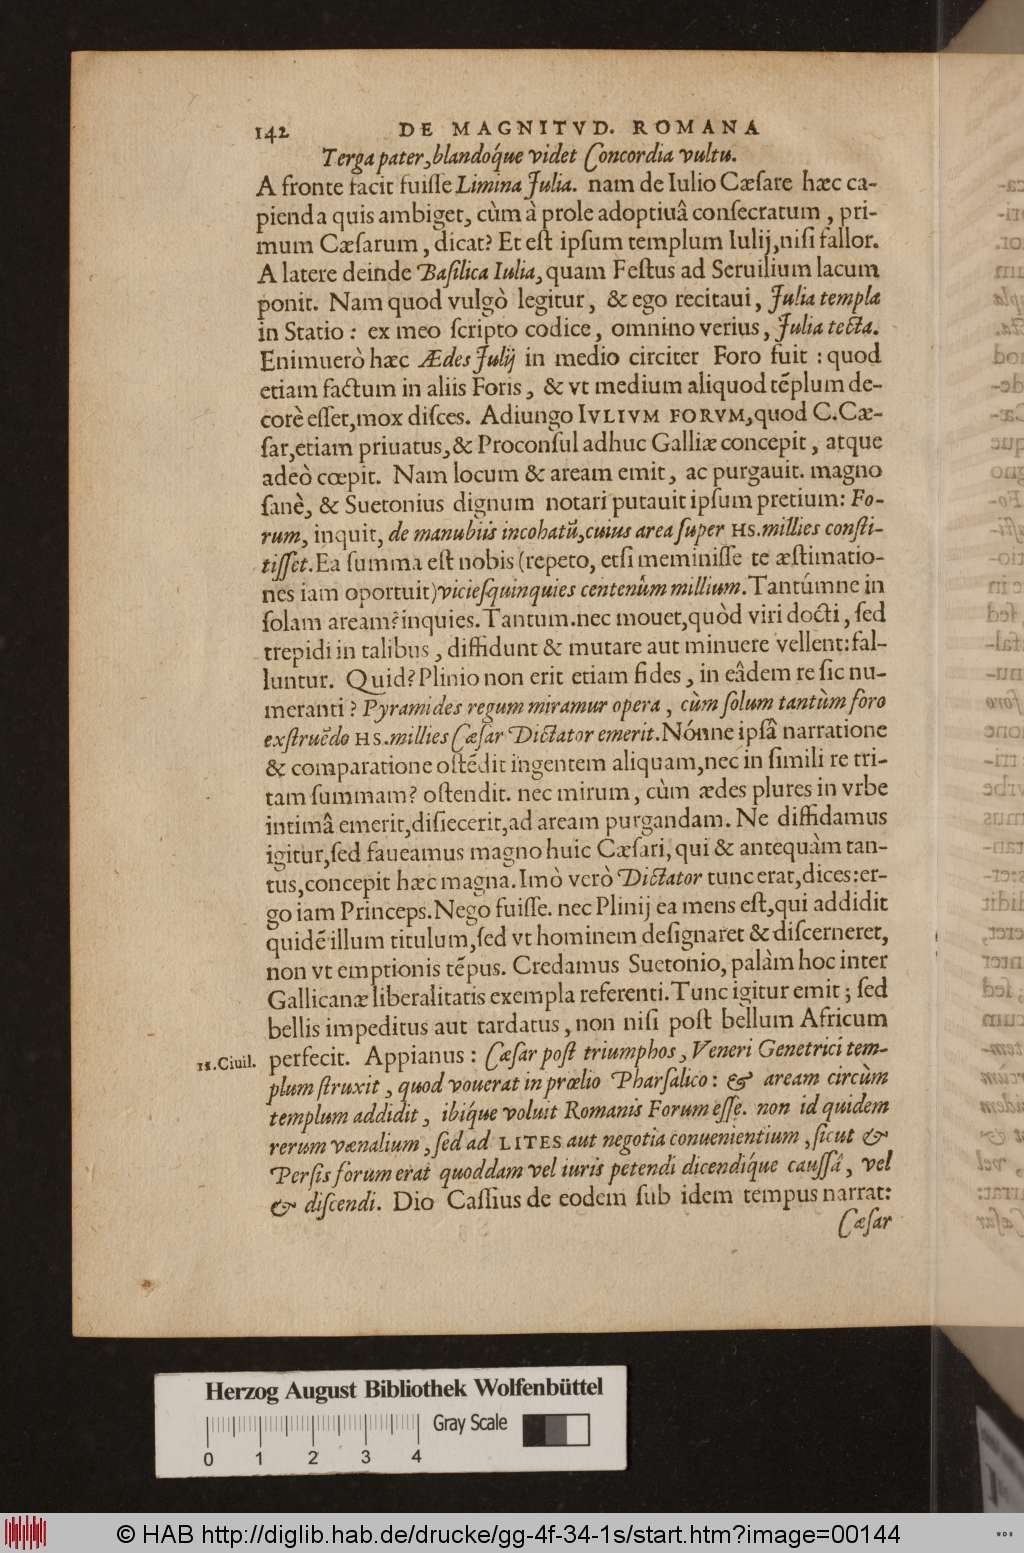 142 DE MAGNITVD. ROMANA
Terga pater, blandóque videt Concordia vultu.
A fronte facit fuiſſe Limina Julia. nam de Iulio Cæſare hæc ca-
pienda quis ambiget, cùm à prole adoptiuâ conſecratum, pri-
mum Cæſarum, dicat? Et eſt ipſum templum Iulij, niſi fallor.
A latere deinde Baſilica Iulia, quam Feſtus ad Seruilium lacum
ponit. Nam quod vulgò legitur, & ego recitaui, Julia templa
in Statio: ex meo ſcripto codice, omnino verius, Julia tecta.
Enimuerò hæc Ædes Julij in medio circiter Foro fuit: quod
etiam factum in aliis Foris, & vt medium aliquod tẽplum de-
corè eſſet, mox diſces. Adiungo IVLIVM FORVM, quod C. Cæ-
ſar, etiam priuatus, & Proconſul adhuc Galliæ concepit, atque
adeò cœpit. Nam locum & aream emit, ac purgauit. magno
ſanè, & Suetonius dignum notari putauit ipſum pretium: Fo-
rum, inquit, de manubiis incohatũ, cuius area ſuper HS. millies conſti-
tiſſet. Ea ſumma eſt nobis (repeto, etſi meminiſſe te æſtimatio-
nes iam oportuit) vicieſquinquies centenûm millium. Tantúmne in
ſolam aream? inquies. Tantum. nec mouet, quòd viri docti, ſed
trepidi in talibus, diffidunt & mutare aut minuere vellent: fal-
luntur. Quid? Plinio non erit etiam fides, in eâdem re ſic nu-
meranti? Pyramides regum miramur opera, cùm ſolum tantùm foro
exſtruẽdo HS. millies Cæſar Dictator emerit. Nónne ipſâ narratione
& comparatione oſtẽdit ingentem aliquam, nec in ſimili re tri-
tam ſummam? oſtendit. nec mirum, cùm ædes plures in vrbe
intimâ emerit, diſiecerit, ad aream purgandam. Ne diffidamus
igitur, ſed faueamus magno huic Cæſari, qui & antequàm tan-
tus, concepit hæc magna. Imò verò Dictator tunc erat, dices: er-
go iam Princeps. Nego fuiſſe. nec Plinij ea mens eſt, qui addidit
quidẽ illum titulum, ſed vt hominem deſignaret & diſcerneret,
non vt emptionis tẽpus. Credamus Suetonio, palàm hoc inter
Gallicanæ liberalitatis exempla referenti. Tunc igitur emit; ſed
bellis impeditus aut tardatus, non niſi poſt bellum Africum
11. Ciuil. perfecit. Appianus: Cæſar poſt triumphos, Veneri Genetrici tem-
plum ſtruxit, quod vouerat in prœlio Pharſalico: & aream circùm
templum addidit, ibíque voluit Romanis Forum eſſe. non id quidem
rerum vænalium, ſed ad LITES aut negotia conuenientium, ſicut &
Perſis forum erat quoddam vel iuris petendi dicendíque cauſſâ, vel
& diſcendi. Dio Caſſius de eodem ſub idem tempus narrat:
Cæſar
Herzog August Bibliothek Wolfenbüttel
Gray Scale
0 1 2 3 4
© HAB http://diglib.hab.de/drucke/gg-4f-34-1s/start.htm?image=00144